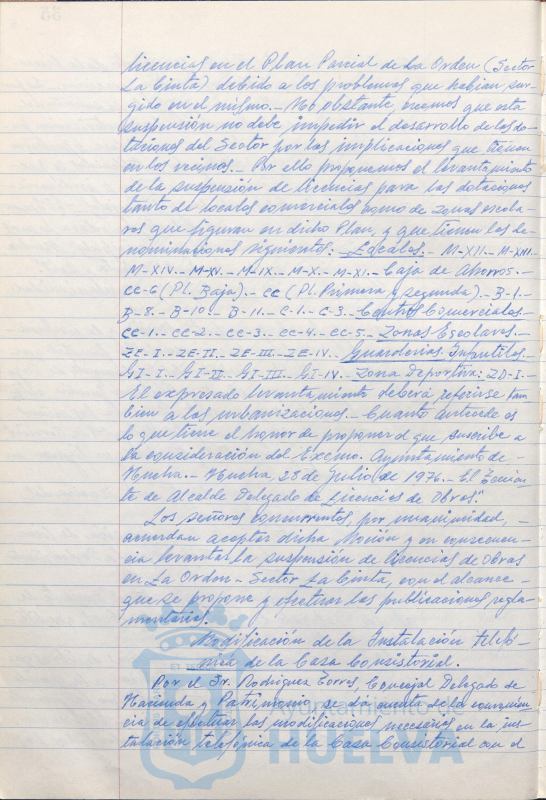 licencias en el Plan Parcial de La Orden (Sector
La Cinta) debido a los problemas que habian sur-
gido en el mismo.- No obstante, creemos que esta
suspensión no debe impedir el desarrollo de las do-
taciones del Sector por las implicaciones que tienen
en los vecinos.- Por ello proponemos el levantamiento
de la suspensión de licencias para las dotaciones
tanto de locales comerciales como de zonas escola-
res que figuran en dicho Plan, y que tienen las de-
nominaciones siguientes: Locales.- M-XII.- M-XIII.-
M-XIV.- M-XV.- M-IX.- M-X.- M-XI.- Caja de Ahorros.-
CC-6 (Pl. Baja).- CC (Pl. Primera y segunda).- B-1.-
B-8.- B-10.- B-11.- C-1.- C-3.- Centros Comerciales.-
CC-1.- CC-2.- CC-3.- CC-4.- CC-5.- Zonas Escolares.-
ZE-I.- ZE-II.- ZE-III.- ZE-IV.- Guarderías Infantiles.-
GI-I.- GI-II.- GI-III.- GI-IV.- Zona Deportiva: ZD-I.-
El expresado levantamiento deberá referirse tam
bien a las urbanizaciones.- Cuanto antecede es
lo que tiene el honor de proponer el que suscribe a
la consideración del Excmo. Ayuntamiento de
Huelva.- Huelva, 28 de Julio de 1976.- El Tenien-
te de Alcalde Delegado de Licencias de Obras"
Los señores concurrentes, por unanimidad, -
acuerdan aceptar dicha Moción y en consecuen-
cia levantar la suspensión de licencias de Obras
en La Orden - Sector La Cinta, con el alcance -
que se propone y efectuar las publicaciones regla-
mentarias.
Modificación de la Instalación telefó-
nica de la Casa Consistorial.
Por el Sr. Rodriguez Torres, Concejal Delegado de
Hacienda y Patrimonio, se da cuenta de la convenien
cia de efectuar las modificaciones necesarias en la ins
talación telefónica de la Casa Consistorial con el
HUELVA